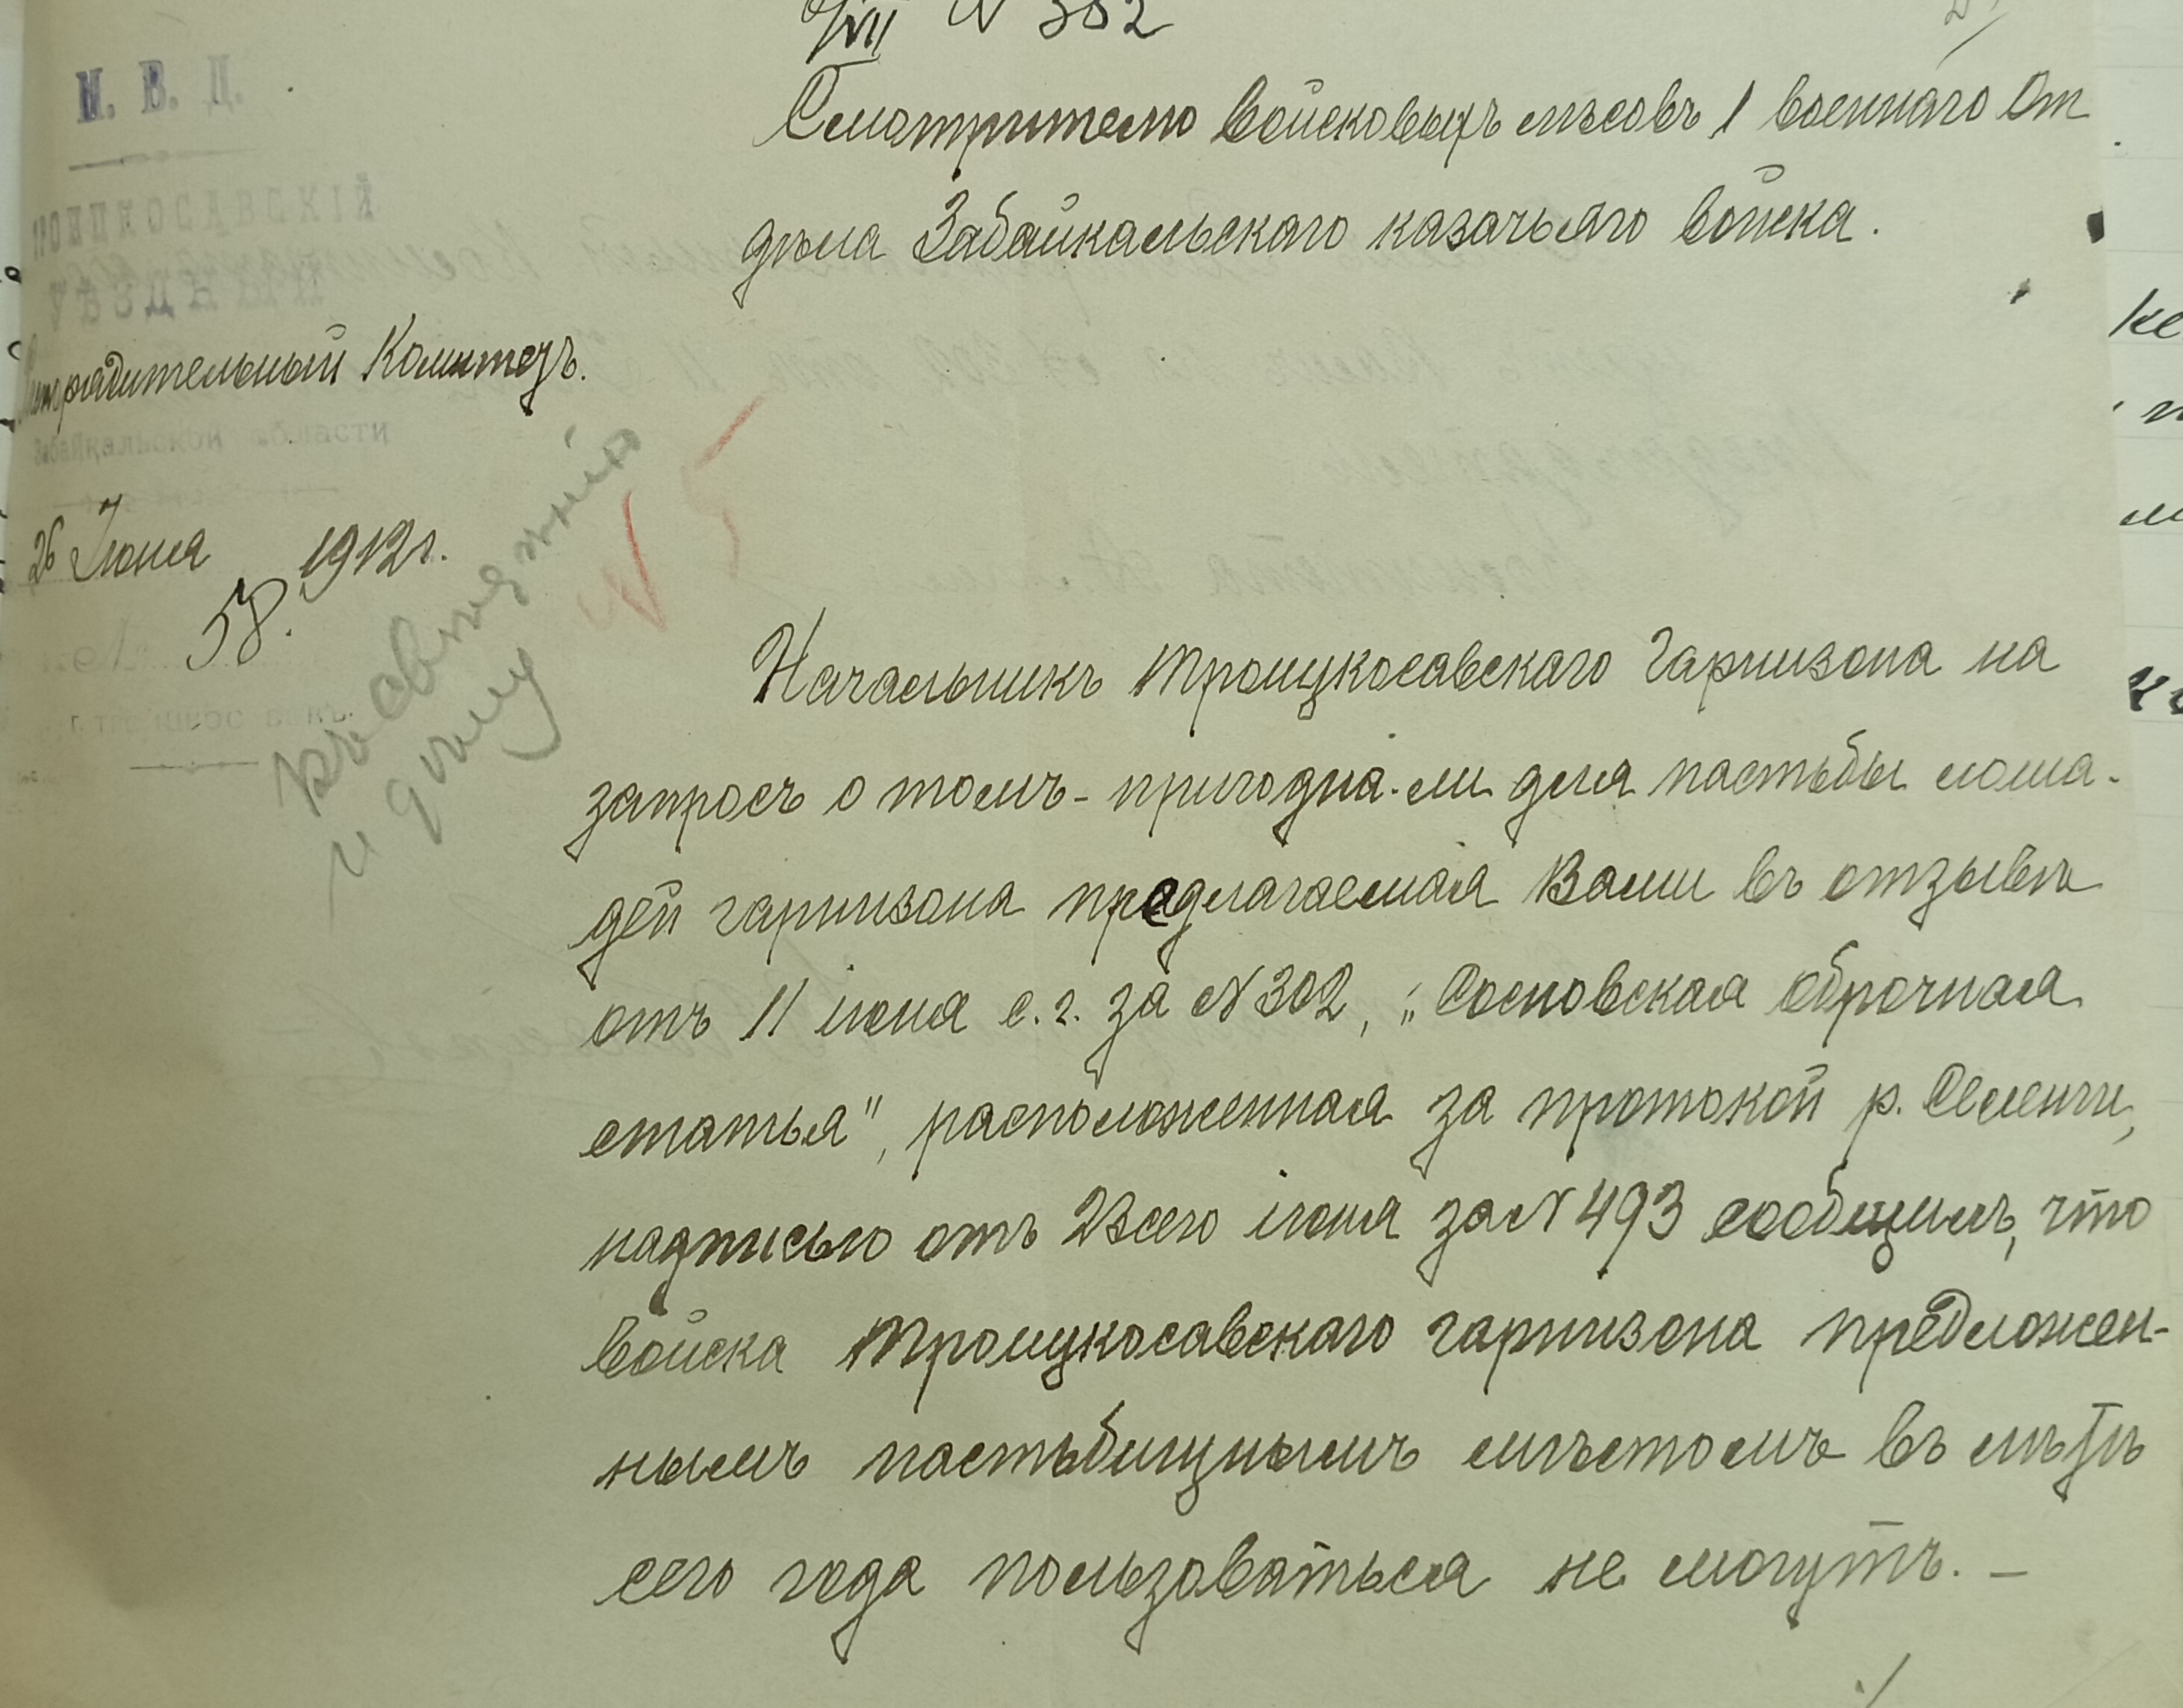 /VII № 382
М. В. Д.
ТРОИЦКОСАВСКІЙ
УѢЗДНЫЙ
Распорядительный Комитетъ.
Забайкальской области
26 Іюня 1912 г.
58.
Смотрителю войсковыхъ лѣсовъ 1 военнаго От
дѣла Забайкальскаго казачьяго войска.
къ свѣдѣнію
и дѣлу
№ 5
Начальникъ Троицкосавскаго Гарнизона на
запросъ о томъ - пригодна-ли для пастьбы лоша-
дей гарнизона предлагаемая Вами въ отзывѣ
отъ 11 іюня с. г. за № 302, „Сосновская оброчная
статья", расположенная за протокой р. Селенги,
надписью отъ 23сего іюня за № 493 сообщилъ, что
войска Троицкосавскаго гарнизона предложен-
нымъ пастьбищнымъ мѣстомъ въ лѣтѣ
сего года пользоваться не могутъ. —